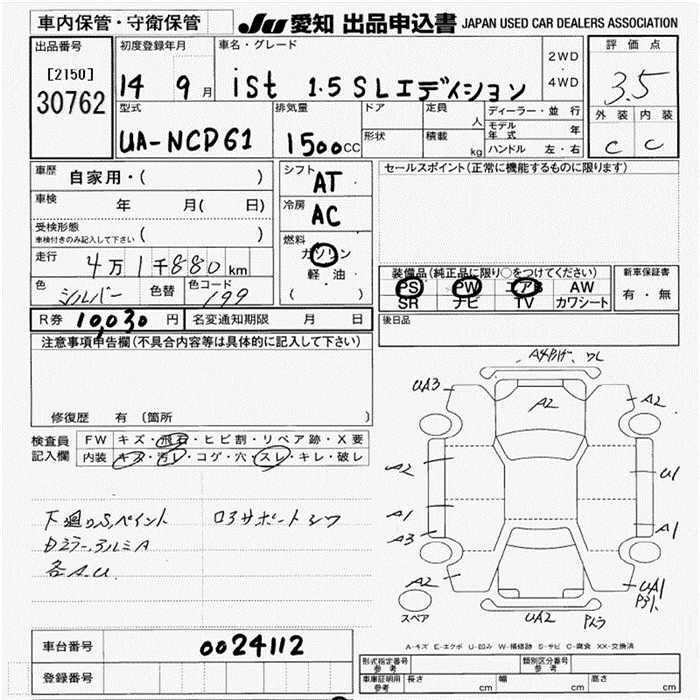 車内保管・守衛保管
JU 愛知 出品申込書 JAPAN USED CAR DEALERS ASSOCIATION
出品番号
[2150]
30762
初度登録年月
14 9 月
車名・グレード
ist 1.5 SLエディション
2WD
・
4WD
評価点
3.5
外装 内装
C C
型式
UA-NCP61
排気量
1500cc
ドア
形状
定員
人
積載
kg
ディーラー・並行
モデル年式
年
ハンドル 左・右
車歴 自家用・( )
車検 年 月( 日)
受検形態
車検付きのみ記入して下さい ( )
走行 4万1千880km
色 シルバー 色替 色コード 199
シフト AT
冷房 AC
燃料
ガソリン
軽・油
( )
セールスポイント(正常に機能するものに限ります)
装備品(純正品に限り○をつけてください)
PS PW エアB AW
SR ナビ TV カワシート
新車保証書
有・無
R券 10,030 円 名変通知期限 月 日
後日品
注意事項申告欄(不具合内容等は具体的に記入して下さい)
修復歴 有 (箇所 )
検査員
記入欄
FW キズ・飛石・ヒビ割・リペア跡・X要
内装 キズ・汚レ・コゲ・穴・スレ・キレ・破レ
下廻りS,ペイント
ロアサポートシワ
各A.U.
UA3
A2
A2
A2
U1
A1
A3
A1
A2
UA1
UA2
スペア
A-キズ E-エクボ U-凹み W-補修跡 S-サビ C-腐食 XX-交換済
車台番号 0024112
登録番号
形式指定番号
参考
類別区分番号
参考
車庫証明用
参考
長さ cm 幅 cm 高さ cm